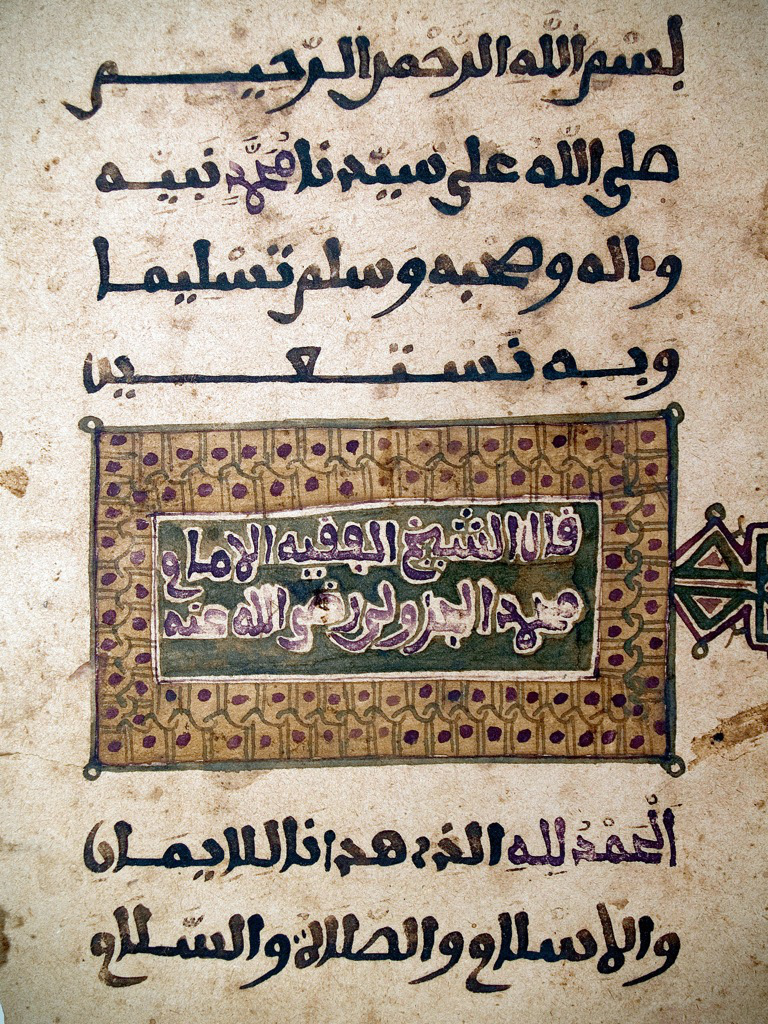 بسم الله الرحمن الرحيم
صلى الله على سيدنا محمد نبيه
واله وصحبه وسلم تسليما
وبه نستعين
قال الشيخ الفقيه الامام
محمد الجزولي رضي الله عنه
الحمد لله الذي هدانا للايمان
والإسلام والصلاة والسلام